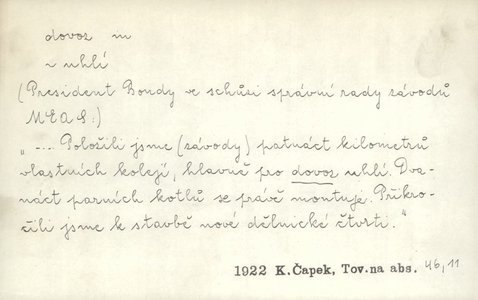 dovoz m
~ uhlí
(President Bondy ve schůzi správní rady závodů
MEAS:)
"-... Položili jsme (závody) patnáct kilometrů
vlastních kolejí, hlavně pro dovoz uhlí. Dva-
náct parních kotlů se právě montuje. Přikro-
čili jsme k stavbě nové dělnické čtvrti."
1922 K.Čapek, Tov.na abs. 46,11